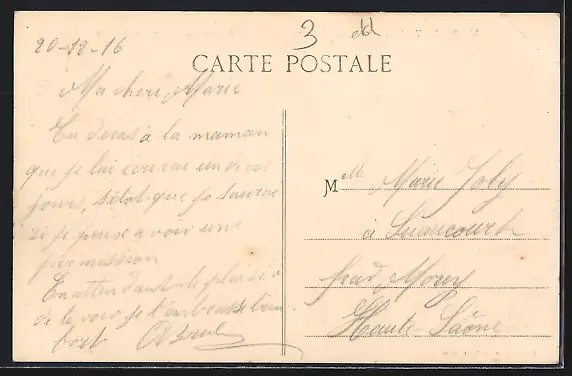 20-12-16
3
CARTE POSTALE
Ma cheri Marie
Tu diras à la maman
que je lui un de ces
jours, sitot que je saurai
si je peux avoir une
permission
En attendant le plaisir
de te voir je t'embrasse bien
fort
M elle Marie Joly
à
par Morey
Haute Saône